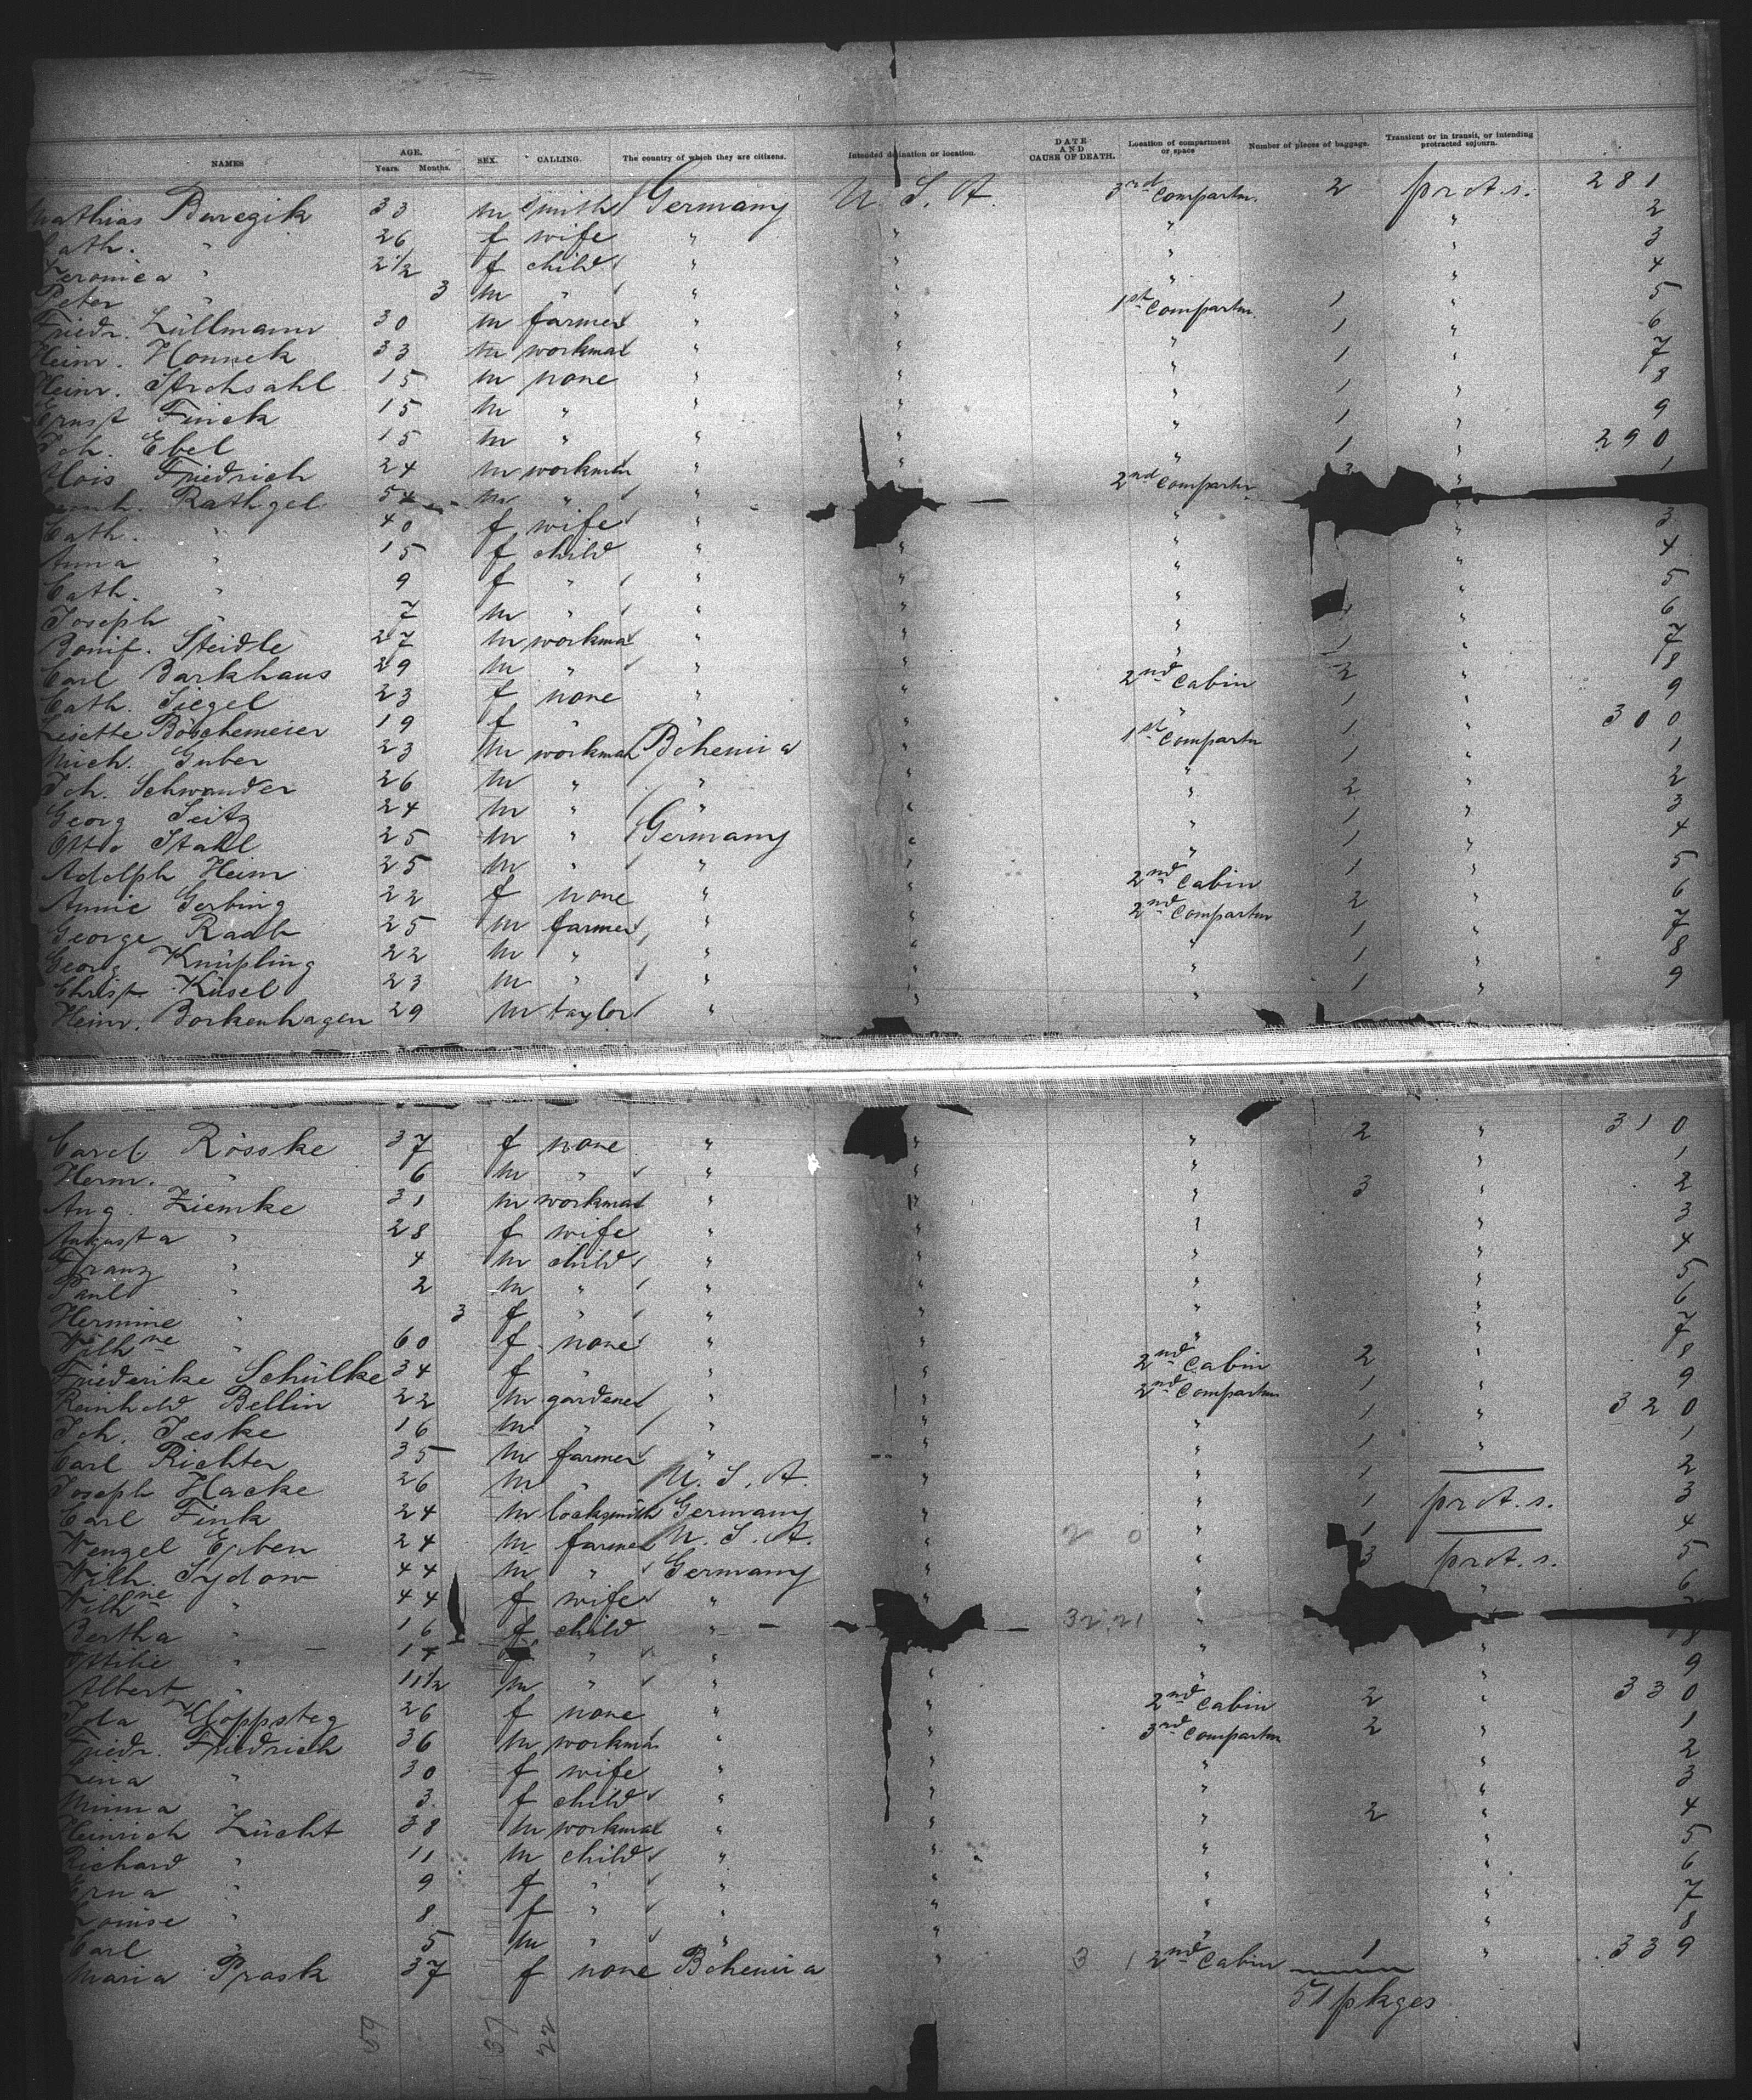 NAMES AGE. Years. Months. SEX. CALLING. The country of which they are citizens. Intended destination or location. DATE AND CAUSE OF DEATH. Location of compartment or space Number of pieces of baggage. Transient or in transit, or intending protracted sojourn.
Mathias 33 m Smith Germany U. S. A. 3rd Compartm. 2 prot. s. 281
Cath. " 26 f wife " " " " 2
Veronica " 2 1/2 f child " " " " 3
Peter " 3 m " " " " " 4
Friedr. Züllmann 30 m farmer " " 1st Compartm. 1 " 5
Heinr. Honnek 33 m workman " " " 1 " 6
Heinr. 15 m none " " " 1 " 7
Ernst Finck 15 m " " " " 1 " 8
Joh. Ebel 15 m " " " " 1 " 9
Alois Friedrich 24 m workman " " " 1 " 290
Rathgel 54 m " " " 2nd Compartm 3 " 1
Cath. " 40 f wife " " "
Anna " 15 f child " " " " 3
Cath. " 9 f " " " " " 4
Joseph " 7 m " " " " " 5
Bonif. Steidle 27 m workman " " " 1 " 6
Carl Barkhaus 29 m " " " " 1 " 7
Cath. Siegel 23 f none " " 2nd Cabin 2 " 8
Lisette Böschemeier 19 f " " " " 1 " 9
Mich. Guber 23 m workman Bohemia " 1st Compartm 1 " 300
Joh. Schwander 26 m " " " " 1 " 1
Georg Seitz 24 m " " " " 2 " 2
Otto Stahl 25 m " Germany " " 1 " 3
Adolph Heim 25 m " " " " 1 " 4
Annie Gerbing 22 f none " " 2nd Cabin 1 " 5
George Raab 25 m farmer " " 2nd Compartm 2 " 6
Georg Knüpling 22 m " " " " 1 " 7
Christ. Küsel 23 m " " " " 1 " 8
Heinr. Borkenhagen 29 m taylor " " 1 " 9
Carol. Rösske 37 f none " " " 2 " 310
Herm. " 6 m " " " " 1
Aug. Ziemke 31 m workman " " " 3 " 2
Augusta " 28 f wife " " " " 3
Franz " 4 m child " " " " 4
Paul " 2 m " " " " " 5
Hermine " 3 f " " " " " 6
Wilhne " 60 f none " " " " 7
Friederike Schülke 34 f " " " 2nd Cabin 2 " 8
Reinhold Bellin 22 m gardener " " 2nd Compartm 1 " 9
Joh. Jeske 16 m " " " " 1 " 320
Carl Richter 35 m farmer " " " 1 " 1
Joseph Hacke 26 m " U. S. A. " " 1 — 2
Carl Fink 24 m locksmith Germany " " 1 prot. s. 3
Wenzel Erben 24 m farmer U. S. A. 2 0 " 1 — 4
Wilh. Sydow 44 m " Germany " " 3 prot. s. 5
Wilhne " 44 f wife " " " " 6
Bertha " 16 f child " 32 21 " "
Ottilie " 14 f " " " " 8
Albert " 11 1/2 m " " " " " 9
Ida Kloppsteg 26 f none " " 2nd Cabin 2 " 330
Friedr. Friedrich 36 m workman " " 3rd Compartm 2 " 1
Lina " 30 f wife " " " " 2
Minna " 3. f child " " " " 3
Heinrich Zücht 38 m workman " " " 2 " 4
Richard " 11 m child " " " " 5
Erna " 9 f " " " " " 6
Louise " 8 f " " " " " 7
Carl " 5 m " " " " " 8
Maria Prask 37 f none Bohemia " 3 1 2nd Cabin 1 " 339
51 pkges
59 37 22